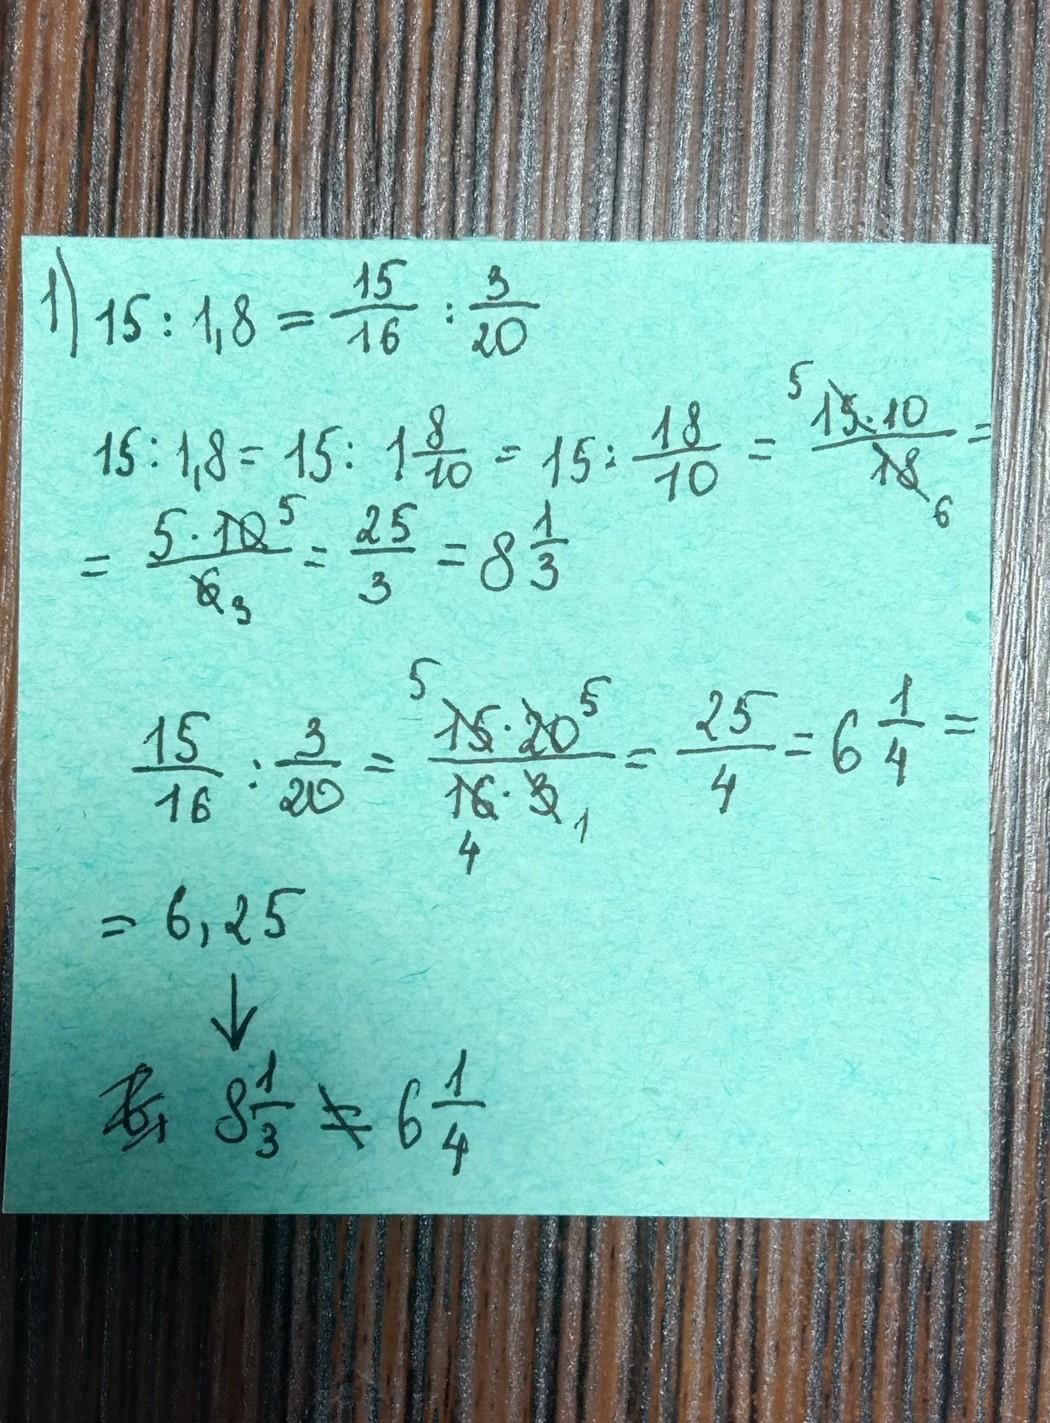 1) 15 : 1,8 = 15/16 : 3/20
15 : 1,8 = 15 : 1 8/10 = 15 : 18/10 = 5 15·10/18 6 =
= 5·10 5/6 3 = 25/3 = 8 1/3
15/16 : 3/20 = 5 15·20 5/16 4·3 1 = 25/4 = 6 1/4 =
= 6,25
↓
8 1/3 ≠ 6 1/4